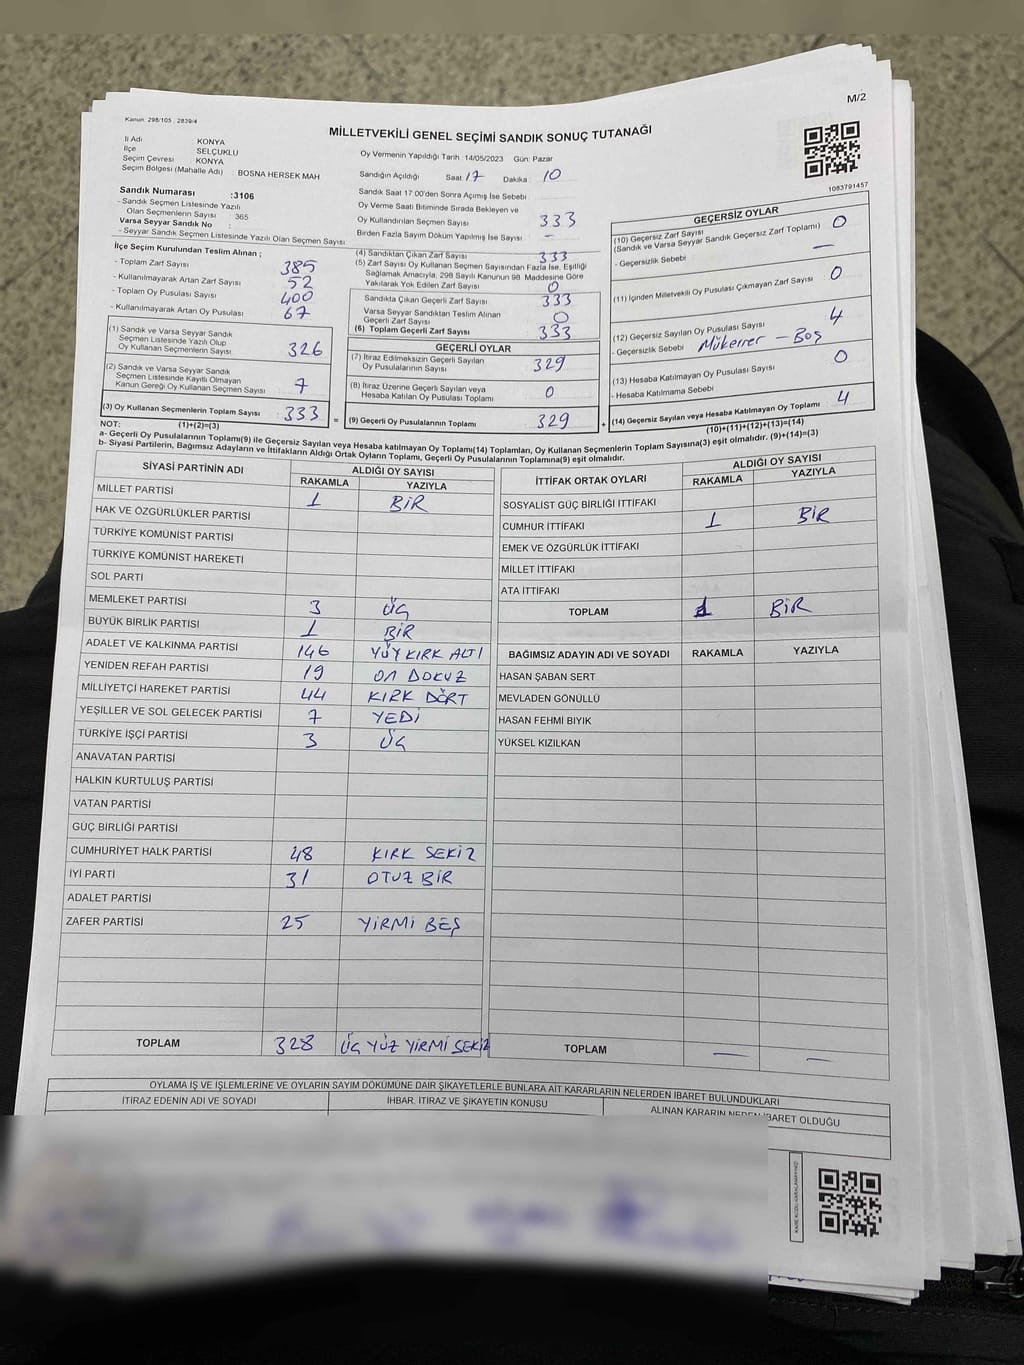 M/2
Kanun 298/105 , 2839/4
MİLLETVEKİLİ GENEL SEÇİMİ SANDIK SONUÇ TUTANAĞI
İl Adı KONYA
İlçe SELÇUKLU
Seçim Çevresi KONYA
Seçim Bölgesi (Mahalle Adı) : BOSNA HERSEK MAH
Sandık Numarası :3106
- Sandık Seçmen Listesinde Yazılı
Olan Seçmenlerin Sayısı : 365
Varsa Seyyar Sandık No :
- Seyyar Sandık Seçmen Listesinde Yazılı Olan Seçmen Sayısı:
Oy Vermenin Yapıldığı Tarih :14/05/2023 Gün: Pazar
Sandığın Açıldığı Saat 17 Dakika 10
Sandık Saat 17:00'den Sonra Açımış İse Sebebi
Oy Verme Saati Bitiminde Sırada Bekleyen ve
Oy Kullandırılan Seçmen Sayısı 333
Birden Fazla Sayım Döküm Yapılmış İse Sayısı -
1083791457
İlçe Seçim Kurulundan Teslim Alınan ;
- Toplam Zarf Sayısı 385
- Kullanılmayarak Artan Zarf Sayısı 52
- Toplam Oy Pusulası Sayısı 400
- Kullanılmayarak Artan Oy Pusulası 67
(1) Sandık ve Varsa Seyyar Sandık
Seçmen Listesinde Yazılı Olup
Oy Kullanan Seçmenlerin Sayısı 326
(2) Sandık ve Varsa Seyyar Sandık
Seçmen Listesinde Kayıtlı Olmayan
Kanun Gereği Oy Kullanan Seçmen Sayısı 7
(3) Oy Kullanan Seçmenlerin Toplam Sayısı 333 =
(1)+(2)=(3)
(4) Sandıktan Çıkan Zarf Sayısı 333
(5) Zarf Sayısı Oy Kullanan Seçmen Sayısından Fazla İse, Eşitliği
Sağlamak Amacıyla, 298 Sayılı Kanunun 98. Maddesine Göre
Yakılarak Yok Edilen Zarf Sayısı 0
Sandıkta Çıkan Geçerli Zarf Sayısı 333
Varsa Seyyar Sandıktan Teslim Alınan
Geçerli Zarf Sayısı 0
(6) Toplam Geçerli Zarf Sayısı 333
GEÇERLİ OYLAR
(7) İtiraz Edilmeksizin Geçerli Sayılan
Oy Pusulalarının Sayısı 329
(8) İtiraz Üzerine Geçerli Sayılan veya
Hesaba Katılan Oy Pusulası Toplamı 0
(9) Geçerli Oy Pusulalarının Toplamı 329 +
GEÇERSİZ OYLAR
(10) Geçersiz Zarf Sayısı 0
(Sandık ve Varsa Seyyar Sandık Geçersiz Zarf Toplamı)
- Geçersizlik Sebebi —
(11) İçinden Milletvekili Oy Pusulası Çıkmayan Zarf Sayısı 0
(12) Geçersiz Sayılan Oy Pusulası Sayısı 4
- Geçersizlik Sebebi Mükerrer - Boş
(13) Hesaba Katılmayan Oy Pusulası Sayısı 0
- Hesaba Katılmama Sebebi
(14) Geçersiz Sayılan veya Hesaba Katılmayan Oy Toplamı 4
(10)+(11)+(12)+(13)=(14)
NOT:
a- Geçerli Oy Pusulalarının Toplamı(9) ile Geçersiz Sayılan veya Hesaba katılmayan Oy Toplamı(14) Toplamları, Oy Kullanan Seçmenlerin Toplam Sayısına(3) eşit olmalıdır. (9)+(14)=(3)
b- Siyasi Partilerin, Bağımsız Adayların ve İttifakların Aldığı Ortak Oyların Toplamı, Geçerli Oy Pusulalarının Toplamına(9) eşit olmalıdır.
SİYASİ PARTİNİN ADI ALDIĞI OY SAYISI
RAKAMLA YAZIYLA
MİLLET PARTİSİ 1 BİR
HAK VE ÖZGÜRLÜKLER PARTİSİ
TÜRKİYE KOMÜNİST PARTİSİ
TÜRKİYE KOMÜNİST HAREKETİ
SOL PARTİ
MEMLEKET PARTİSİ 3 ÜÇ
BÜYÜK BİRLİK PARTİSİ 1 BİR
ADALET VE KALKINMA PARTİSİ 146 YÜY KIRK ALTI
YENİDEN REFAH PARTİSİ 19 ON DOKUZ
MİLLİYETÇİ HAREKET PARTİSİ 44 KIRK DÖRT
YEŞİLLER VE SOL GELECEK PARTİSİ 7 YEDİ
TÜRKİYE İŞÇİ PARTİSİ 3 ÜÇ
ANAVATAN PARTİSİ
HALKIN KURTULUŞ PARTİSİ
VATAN PARTİSİ
GÜÇ BİRLİĞİ PARTİSİ
CUMHURİYET HALK PARTİSİ 48 KIRK SEKİZ
İYİ PARTİ 31 OTUZ BİR
ADALET PARTİSİ
ZAFER PARTİSİ 25 YİRMİ BEŞ
TOPLAM 328 ÜÇ YÜZ YİRMİ SEKİZ
İTTİFAK ORTAK OYLARI ALDIĞI OY SAYISI
RAKAMLA YAZIYLA
SOSYALİST GÜÇ BİRLİĞİ İTTİFAKI
CUMHUR İTTİFAKI 1 BİR
EMEK VE ÖZGÜRLÜK İTTİFAKI
MİLLET İTTİFAKI
ATA İTTİFAKI
TOPLAM 1 BİR
BAĞIMSIZ ADAYIN ADI VE SOYADI RAKAMLA YAZIYLA
HASAN ŞABAN SERT
MEVLADEN GÖNÜLLÜ
HASAN FEHMİ BIYIK
YÜKSEL KIZILKAN
TOPLAM — —
OYLAMA İŞ VE İŞLEMLERİNE VE OYLARIN SAYIM DÖKÜMÜNE DAİR ŞİKAYETLERLE BUNLARA AİT KARARLARIN NELERDEN İBARET BULUNDUKLARI
İTİRAZ EDENİN ADI VE SOYADI İHBAR, İTİRAZ VE ŞİKAYETİN KONUSU ALINAN KARARIN NEDEN İBARET OLDUĞU